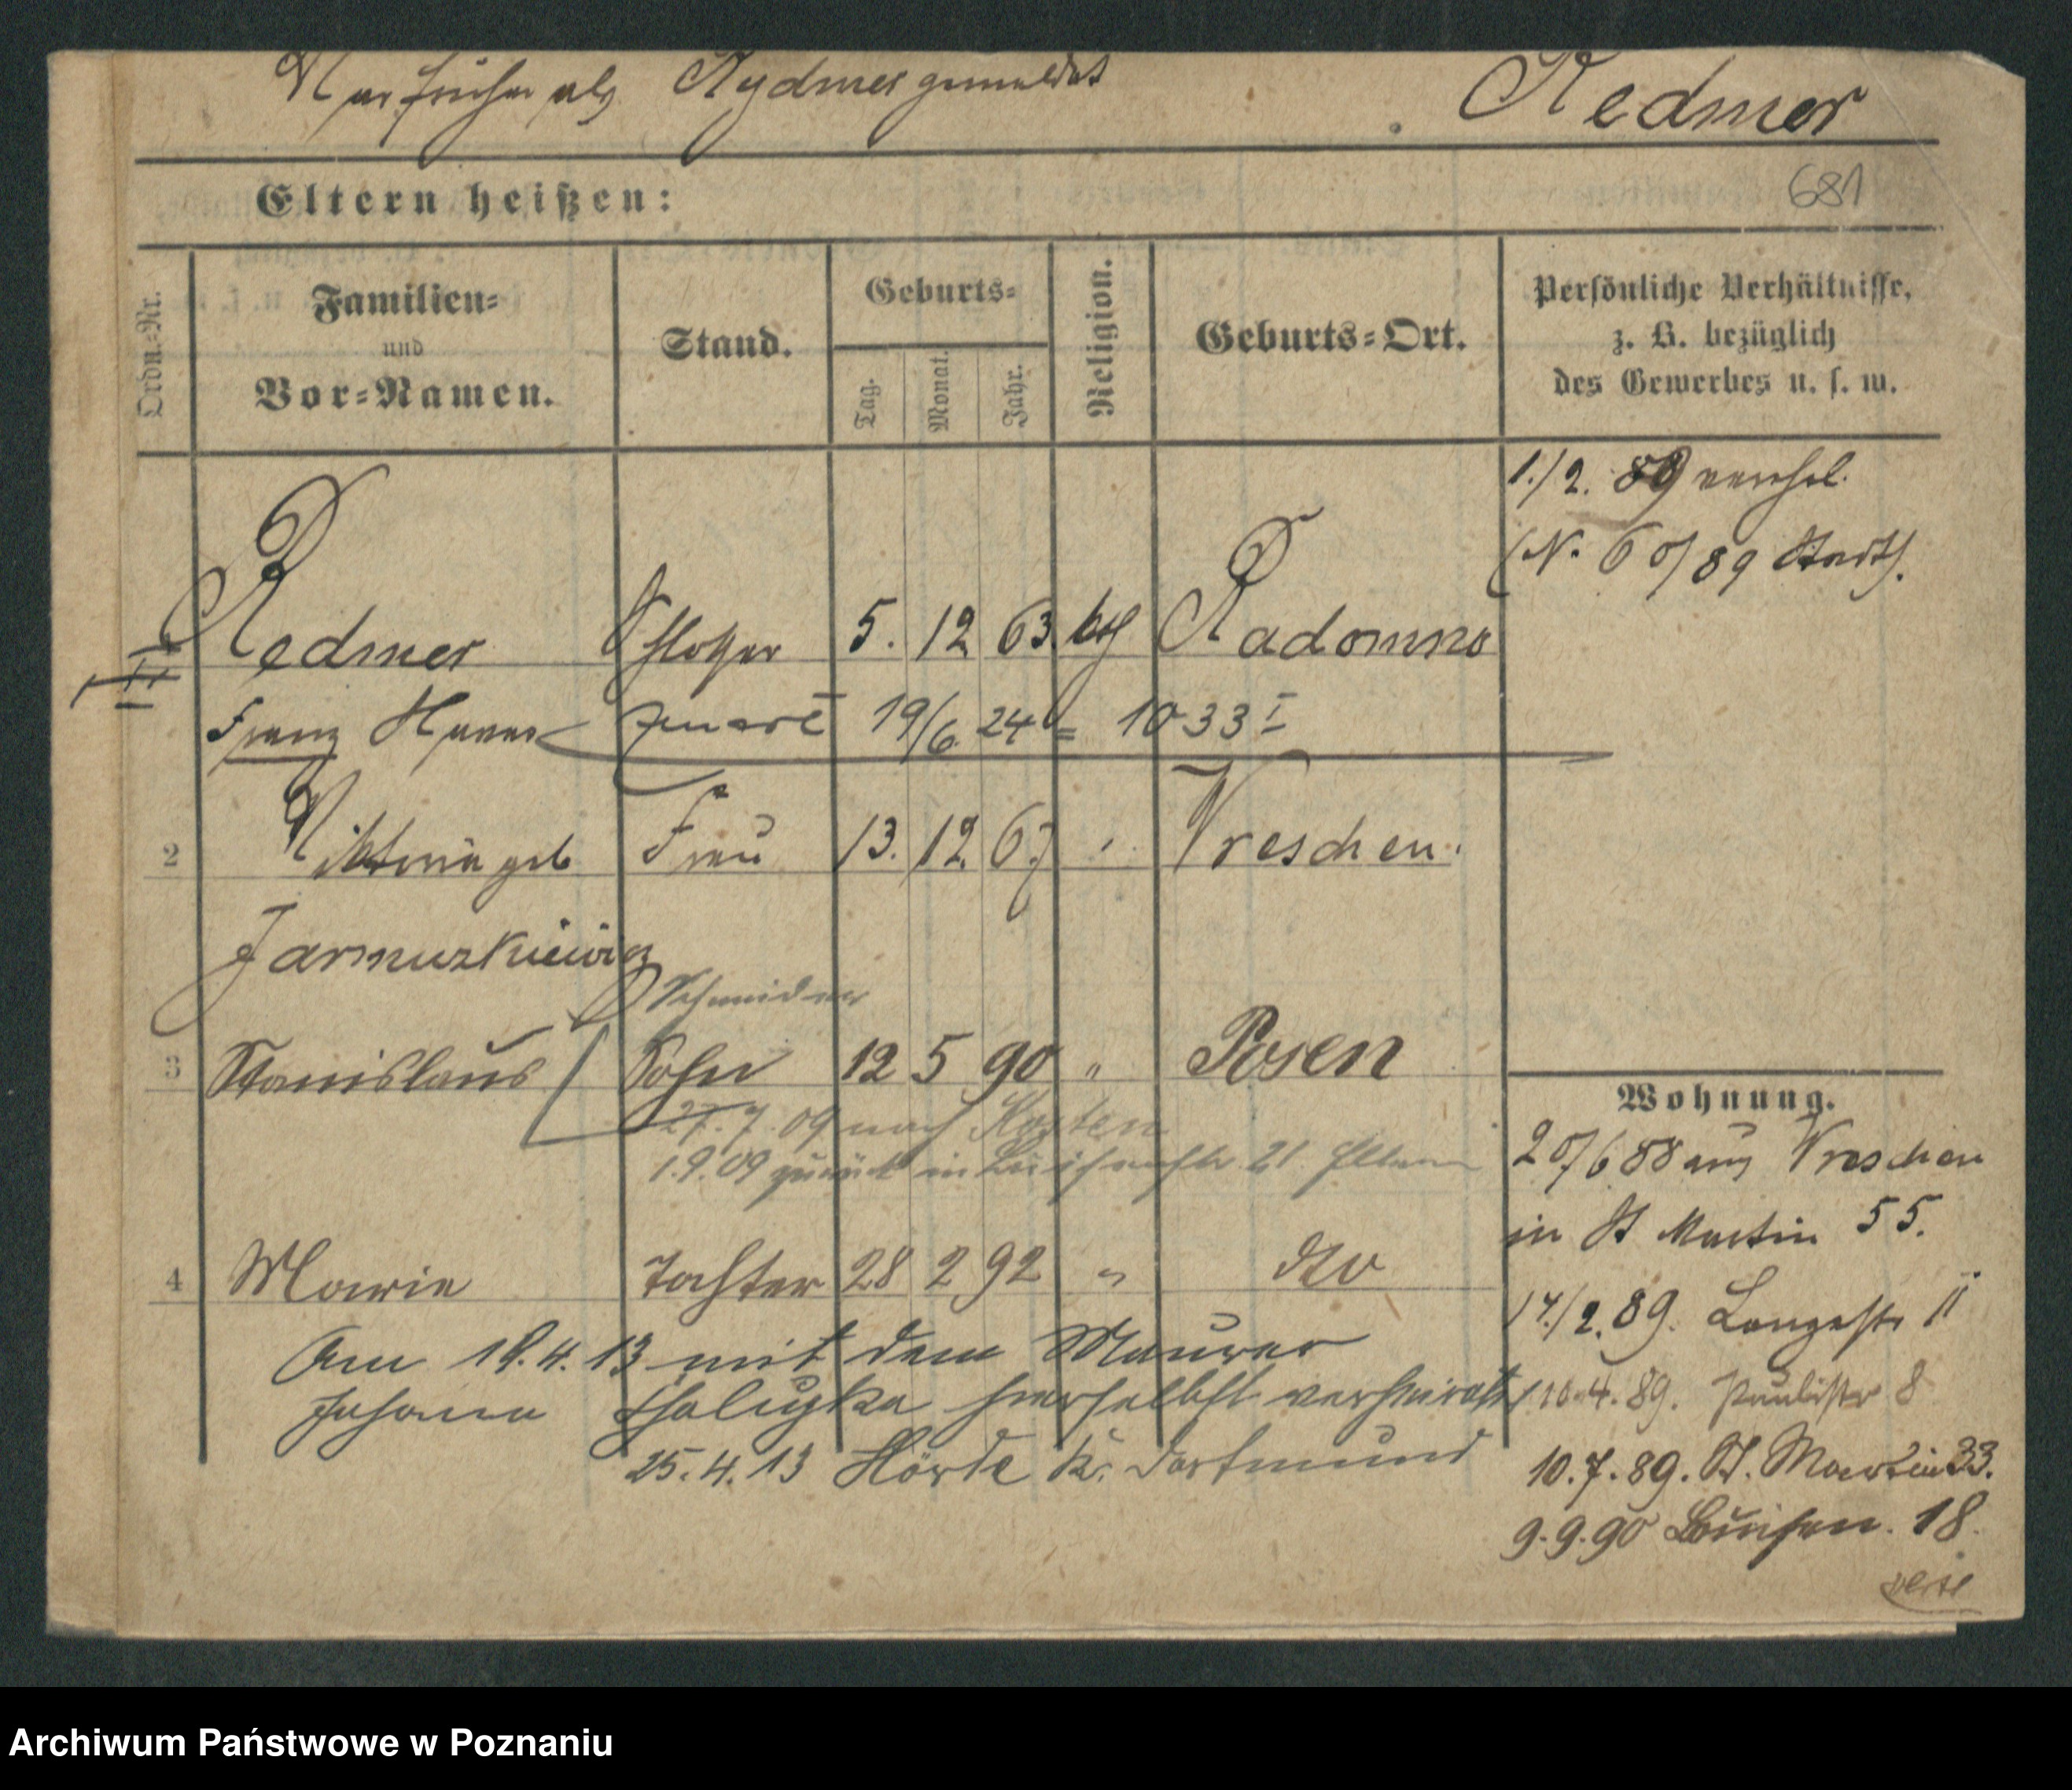 War früher als Rydmer gemeldet
Redmer
681
Eltern heißen:
Ordn.-Nr.
Familien-
und
Vor-Namen.
Stand.
Geburts-
Tag.
Monat.
Jahr.
Religion.
Geburts-Ort.
Persönliche Verhältnisse,
z. B. bezüglich
des Gewerbes u. s. w.
1./2. 89 verehel.
(N. 60/89 Stadt).
Redmer Schlosser 5. 12 63. kath Radomno
Franz 19/6. 24 = 1033 I
2 Viktoria geb Frau 13. 12. 67 " Wreschen.
Jarmuzkiewicz
3 Stanislaus Sohn 12 5 90 " Posen
27.7.09 nach Kosten
1.9.09 zurück in 21 Eltern
4 Marie Tochter 28 2 92 " dto
Am 19.4.13 mit dem Maurer
Johann hierselbst verheirathet
25.4.13 Hörde Kr. Dortmund
Wohnung.
20/6 88 aus Wreschen
in St Martin 55.
14/2.89. Langestr 11
10.4.89. Paulistr 8
10.7.89. St. Martin 33.
9.9.90 Louisen. 18.
verte
Archiwum Państwowe w Poznaniu